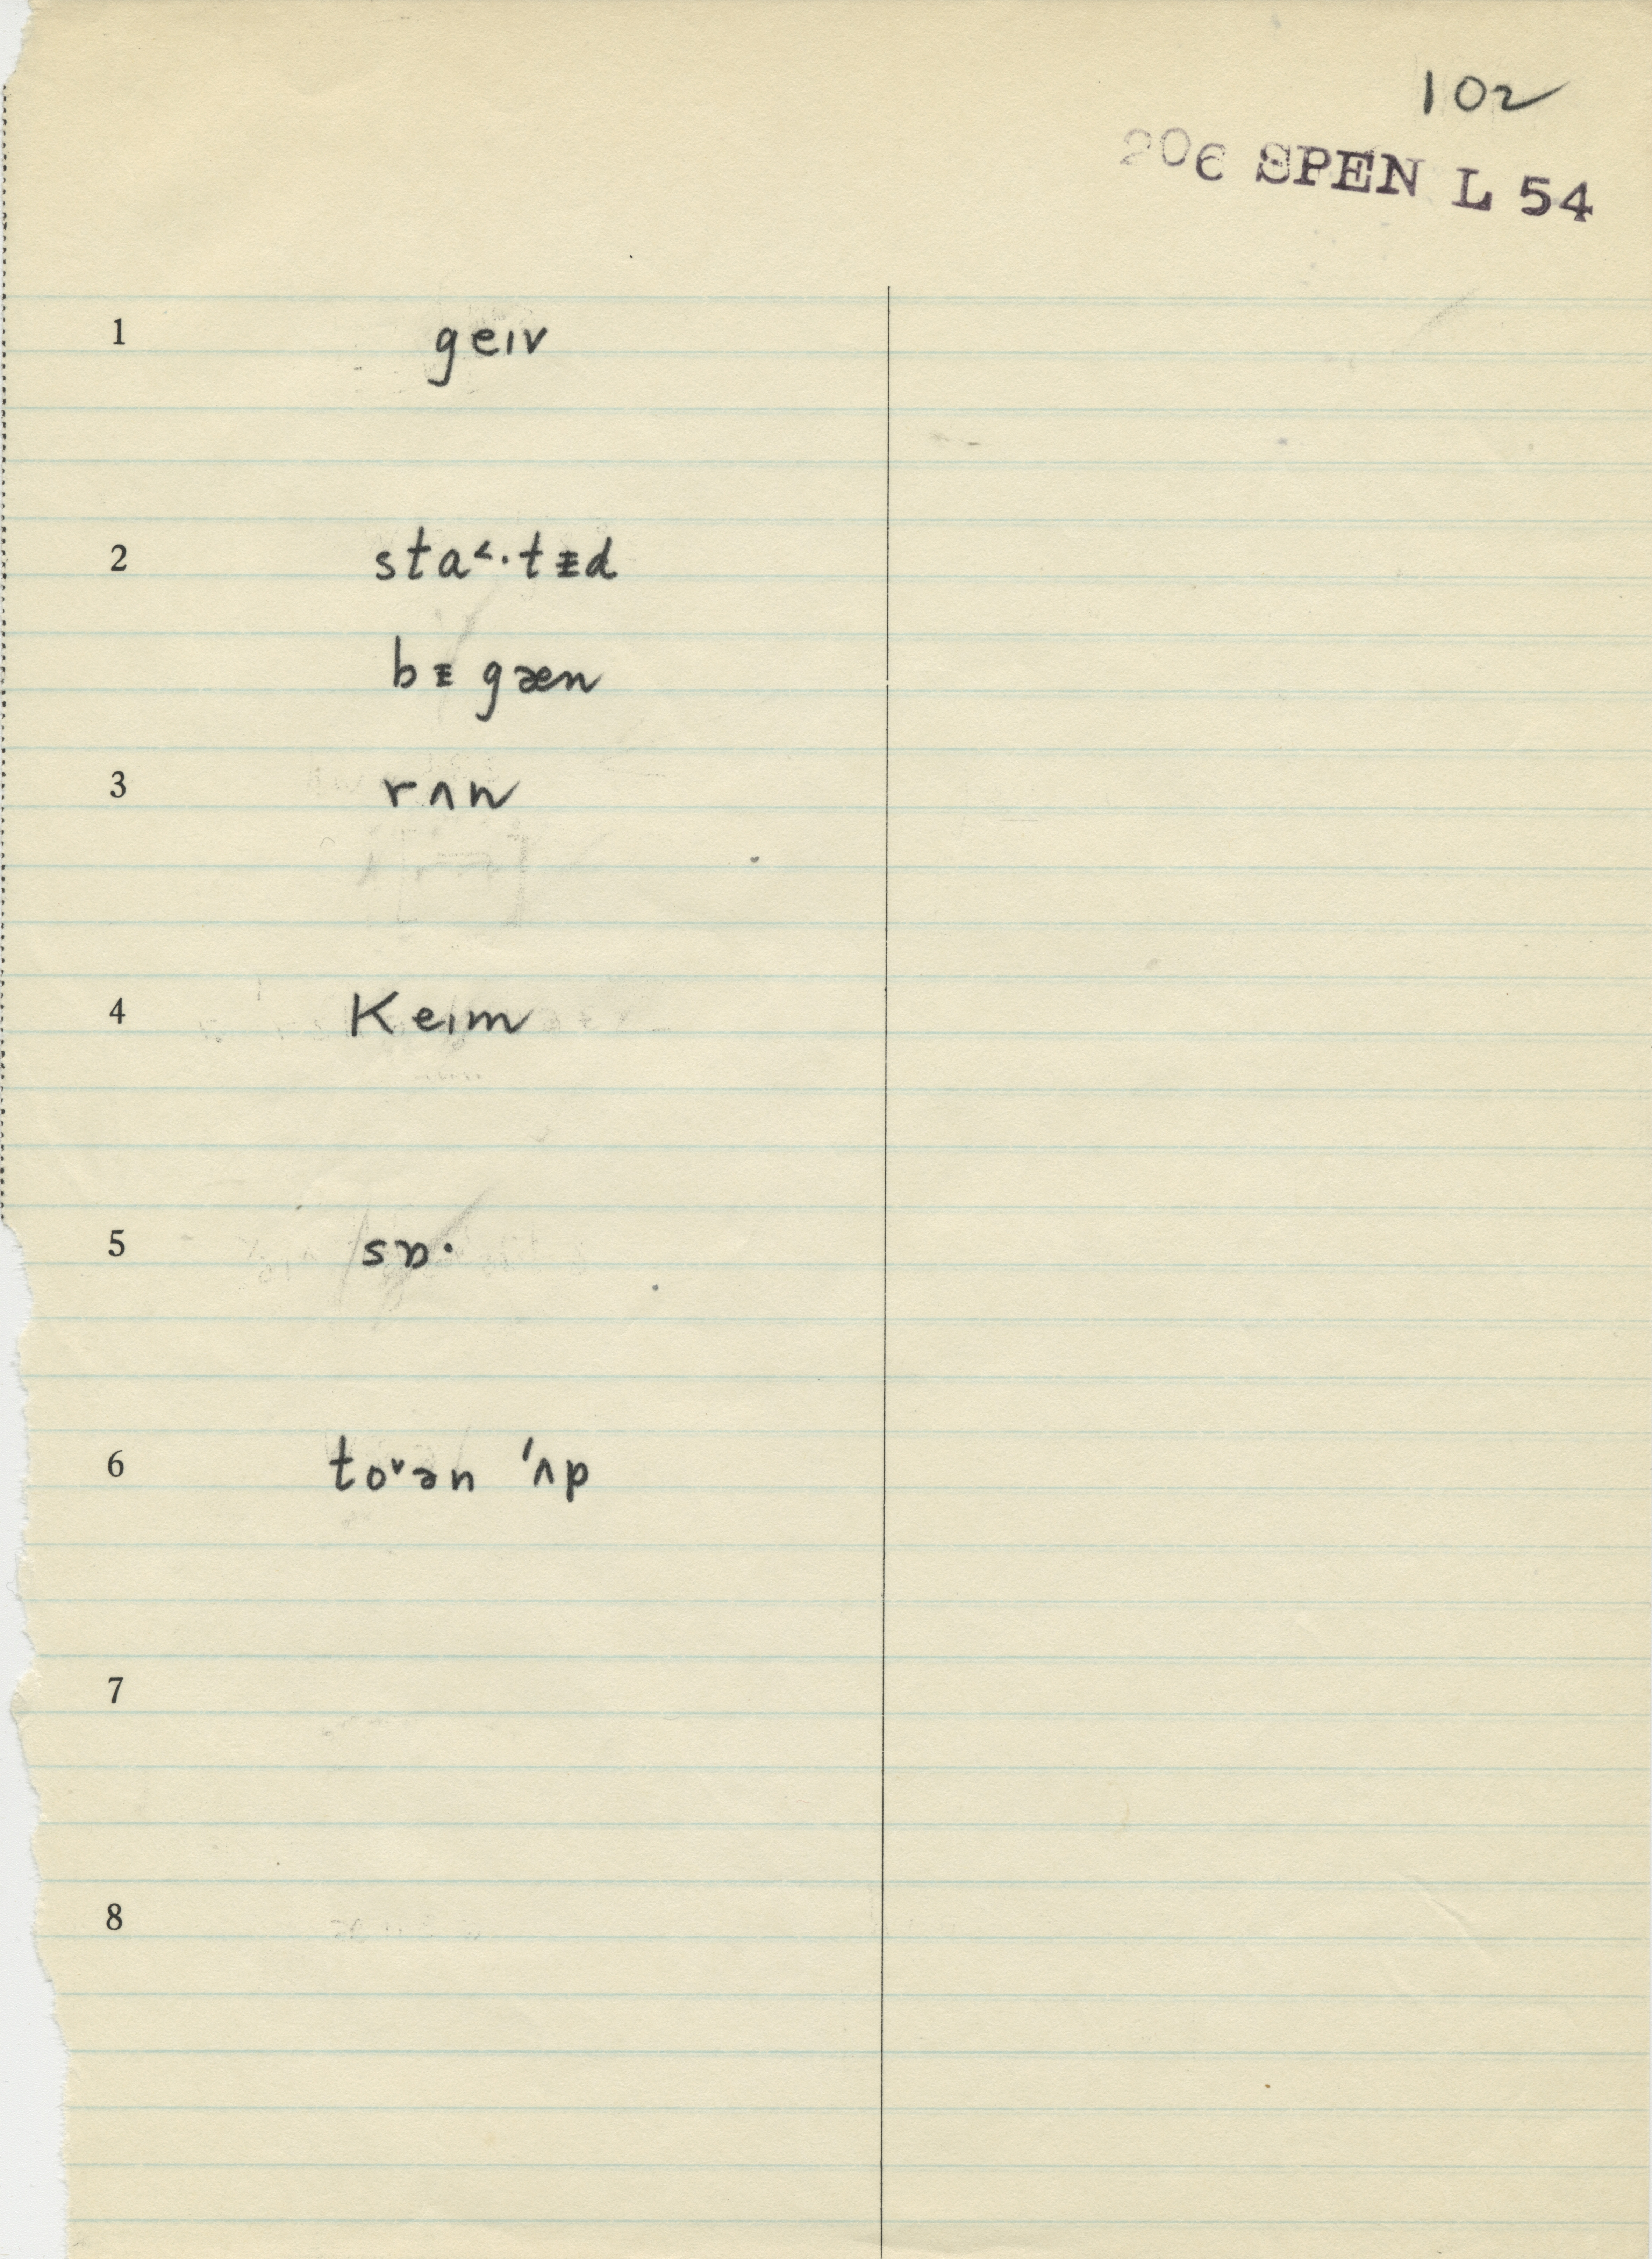 102
206 SPEN L 54
1 geɪv
2 sta˂·tᵻd
bᵻ gæn
3 rʌn
4 Keɪm
5 sɒ·
6 to˅ən 'ʌp
7
8